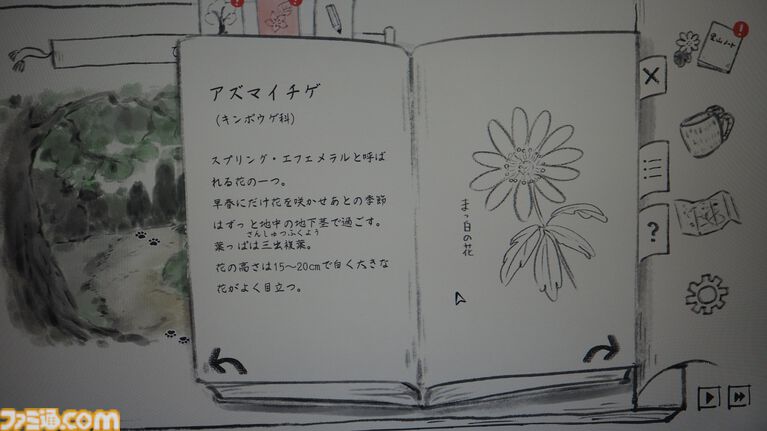 アズマイチゲ
(キンポウゲ科)
スプリング・エフェメラルと呼ば
れる花の一つ。
早春にだけ花を咲かせあとの季節
はずっと地中の地下茎で過ごす。
さんしゅつふくよう
葉っぱは三出複葉。
花の高さは15～20cmで白く大きな
花がよく目立つ。
まっ白の花
?
ファミ通.com